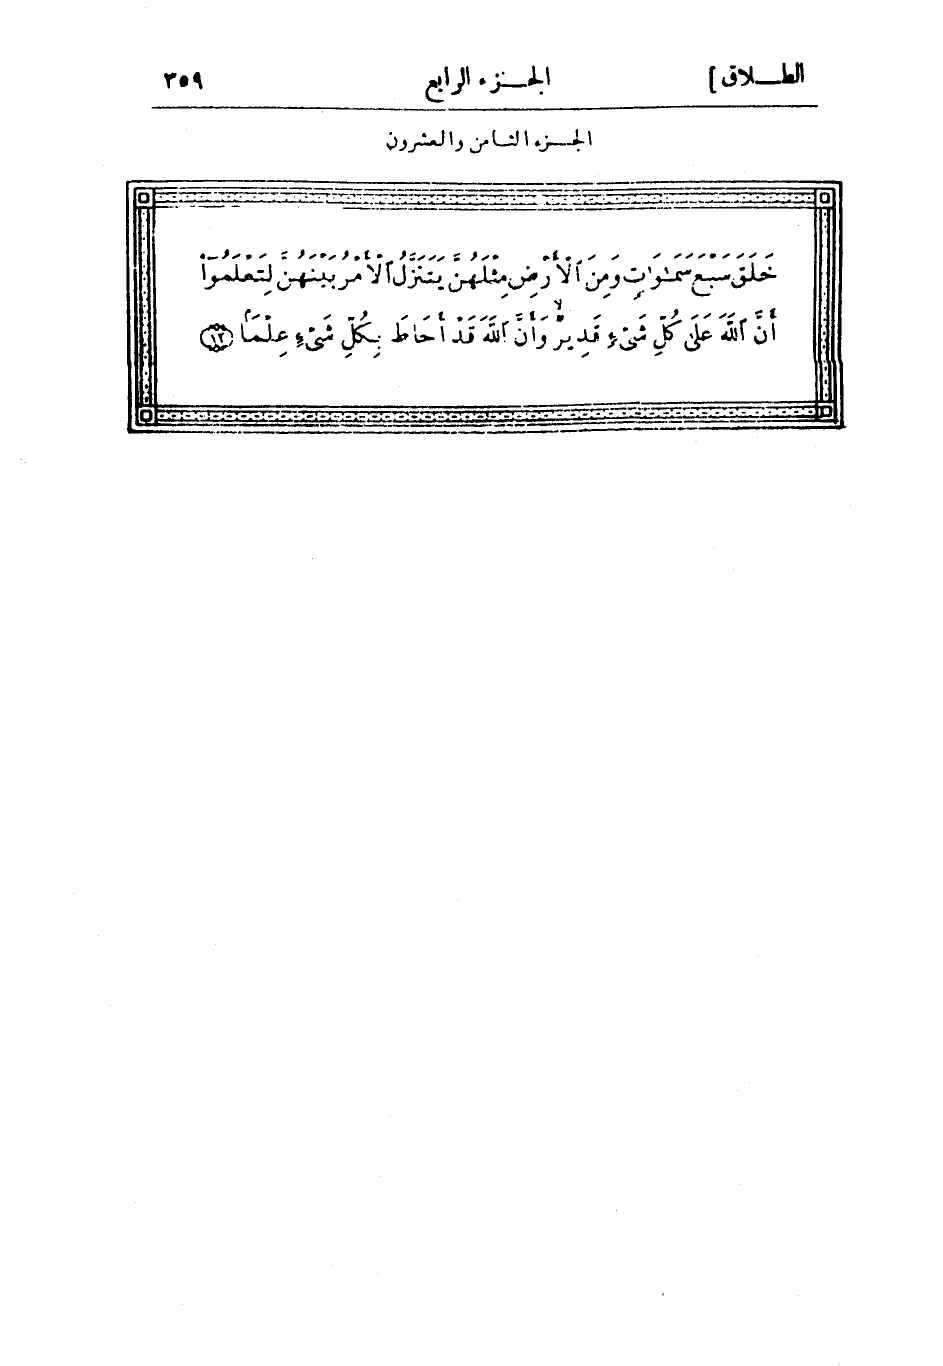 الطـلاق] الجـزء الرابع ٣٥٩
الجـزء الثامن والعشرون
خَلَقَ سَبْعَ سَمَٰوَٰتٍ وَمِنَ ٱلْأَرْضِ مِثْلَهُنَّ يَتَنَزَّلُ ٱلْأَمْرُ بَيْنَهُنَّ لِتَعْلَمُوٓا۟
أَنَّ ٱللَّهَ عَلَىٰ كُلِّ شَىْءٍ قَدِيرٌ ۙ وَأَنَّ ٱللَّهَ قَدْ أَحَاطَ بِكُلِّ شَىْءٍ عِلْمًۢا ١٢